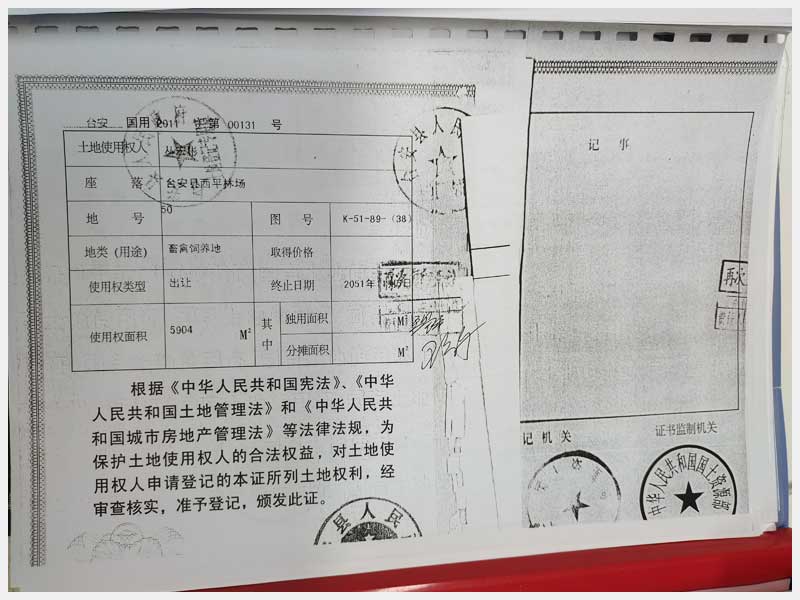 台安 国用 2011 第 00131 号
土地使用权人
座 落 台安县西平林场
地 号 50 图 号 K-51-89-(38)
地类(用途) 畜禽饲养地 取得价格
使用权类型 出让 终止日期 2051年
使用权面积 5904 M² 其中 独用面积 M²
分摊面积 M²
根据《中华人民共和国宪法》、《中华
人民共和国土地管理法》和《中华人民共
和国城市房地产管理法》等法律法规,为
保护土地使用权人的合法权益,对土地使
用权人申请登记的本证所列土地权利,经
审查核实,准予登记,颁发此证。
县人民
台安县人
记 事
再次
记机关
证书监制机关
中华人民共和国国土资源部